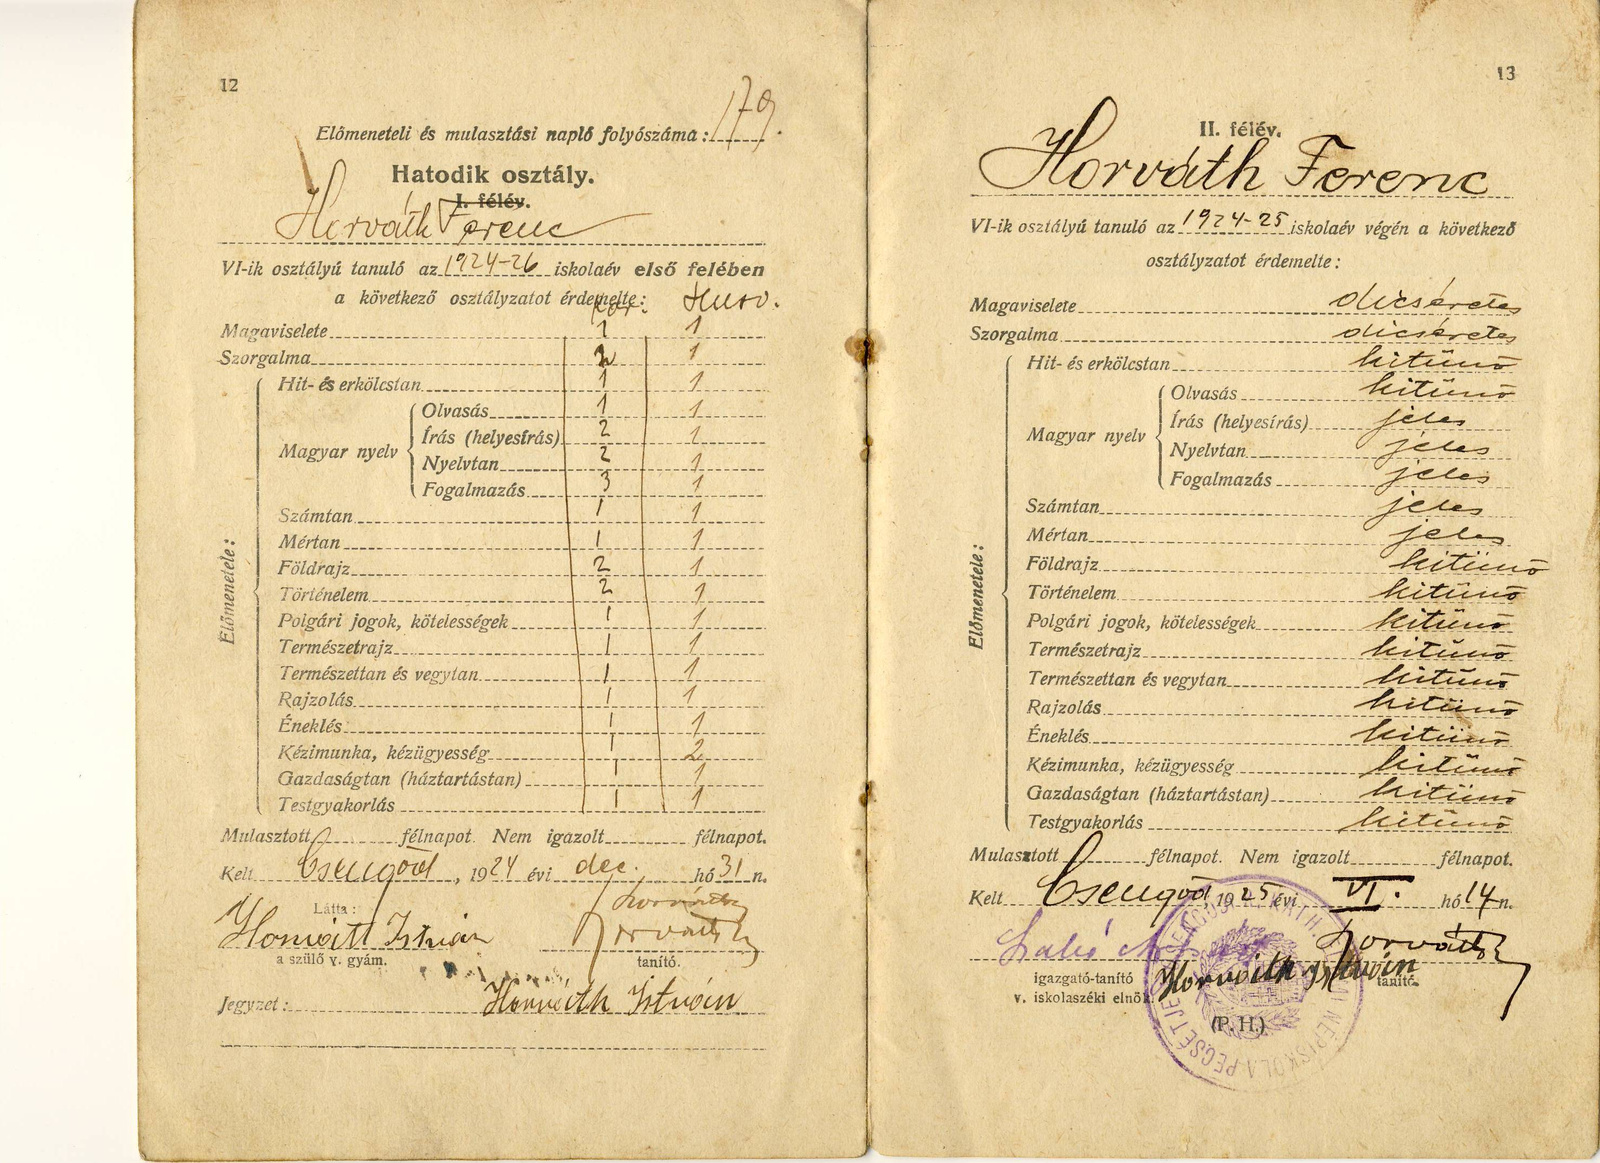 12
Előmeneteli és mulasztási napló folyószáma: 179.
Hatodik osztály.
I. félév.
Horváth Ferenc
VI-ik osztályú tanuló az 1924-26 iskolaév első felében
a következő osztályzatot érdemelte:
Magaviselete 1 1
Szorgalma 1
Hit- és erkölcstan 1 1
Magyar nyelv
Olvasás 1 1
Írás (helyesírás) 2 1
Nyelvtan 2 1
Fogalmazás 3 1
Számtan 1 1
Mértan 1 1
Földrajz 2 1
Történelem 2 1
Polgári jogok, kötelességek 1 1
Természetrajz 1 1
Természettan és vegytan 1 1
Rajzolás 1 1
Éneklés 1 1
Kézimunka, kézügyesség 1 2
Gazdaságtan (háztartástan) 1 1
Testgyakorlás 1 1
Előmenetele:
Mulasztott félnapot. Nem igazolt félnapot.
Kelt Csengőd, 1924 évi dec. hó 31 n.
Látta:
Horváth István
Horváth
a szülő v. gyám.
tanító.
Jegyzet: Horváth István
13
II. félév.
Horváth Ferenc
VI-ik osztályú tanuló az 1924-25 iskolaév végén a következő
osztályzatot érdemelte:
Magaviselete dicséretes
Szorgalma dicséretes
Hit- és erkölcstan kitünő
Magyar nyelv
Olvasás kitünő
Írás (helyesírás) jeles
Nyelvtan jeles
Fogalmazás jeles
Számtan jeles
Mértan jeles
Földrajz kitünő
Történelem kitünő
Polgári jogok, kötelességek kitünő
Természetrajz kitünő
Természettan és vegytan kitünő
Rajzolás kitünő
Éneklés kitünő
Kézimunka, kézügyesség kitünő
Gazdaságtan (háztartástan) kitünő
Testgyakorlás kitünő
Előmenetele:
Mulasztott félnapot. Nem igazolt félnapot.
Kelt Csengőd, 1925 évi VI. hó 14 n.
Horváth
igazgató-tanító
v. iskolaszéki elnök
Horváth István
tanító.
(P. H.)
NÉPISKOLA PECSÉTJE